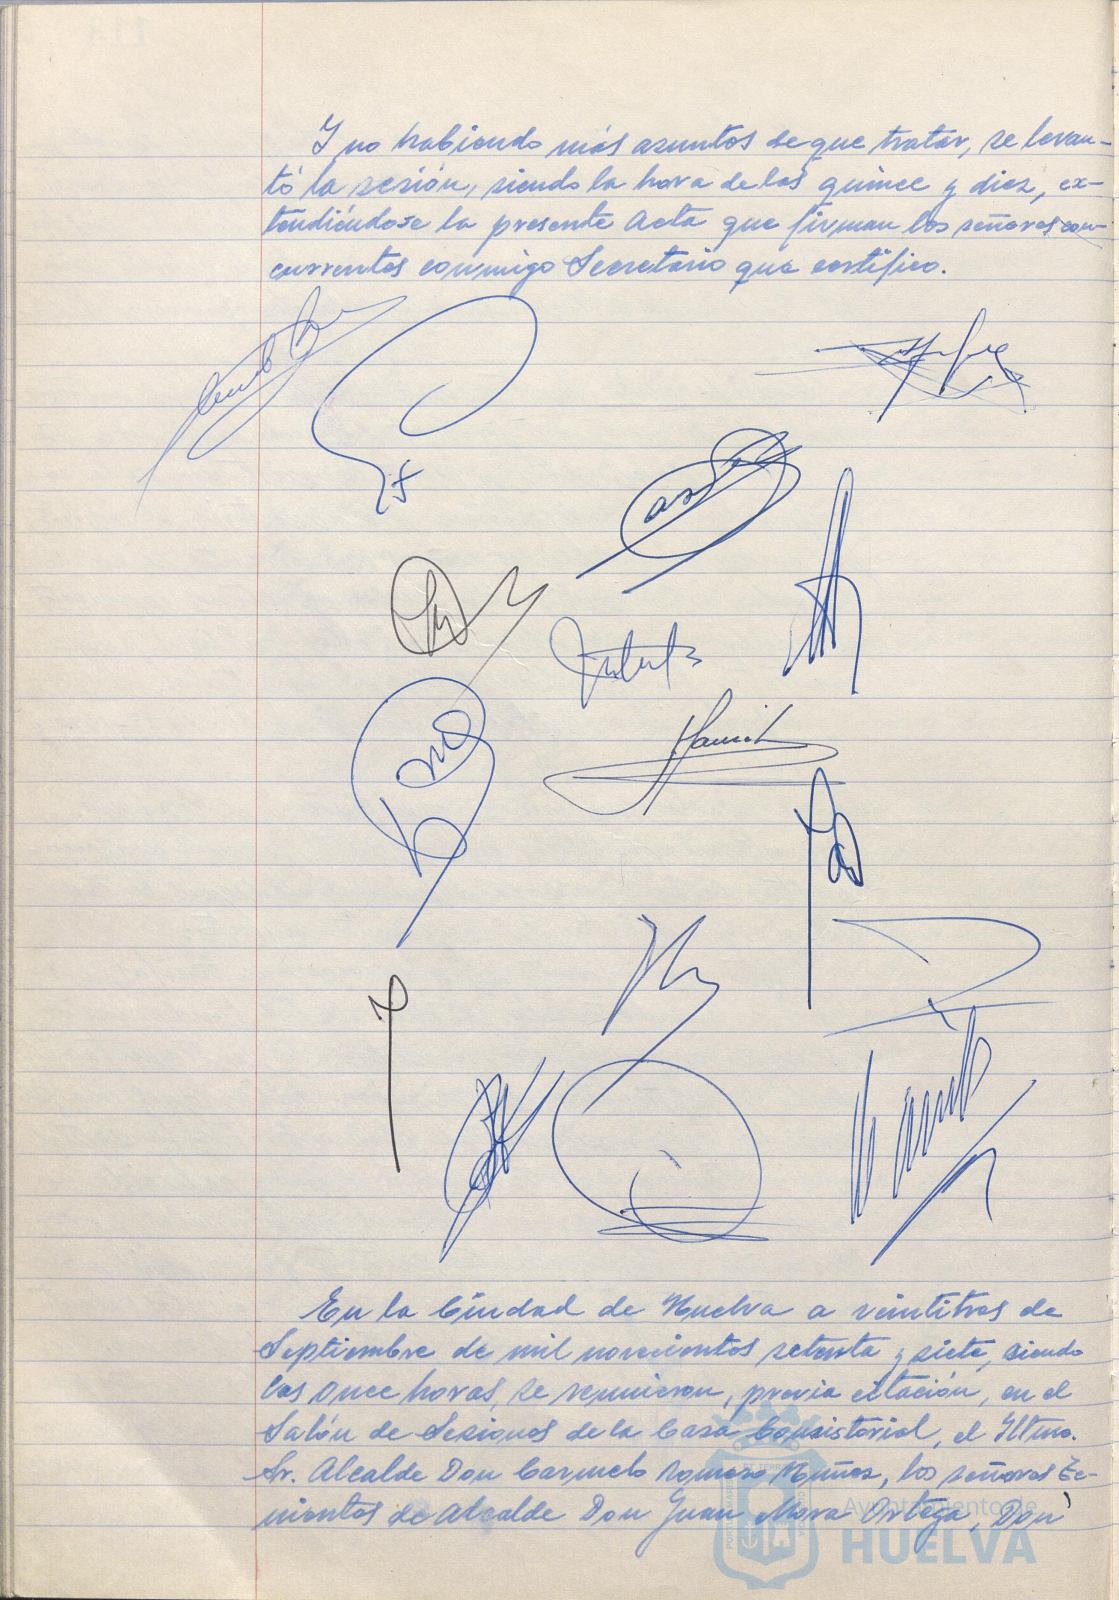 Y no habiendo más asuntos de que tratar, se levan-
tó la sesión, siendo la hora de las quince y diez, ex-
tendiéndose la presente Acta que firman los señores con-
currentes conmigo Secretario que certifico.
En la Ciudad de Huelva a veintitres de
Septiembre de mil novecientos setenta y siete, siendo
las once horas, se reunieron, previa citación, en el
Salón de Sesiones de la Casa Consistorial, el Iltmo.
Sr. Alcalde Don Carmelo Romero Muñoz, los señores Te-
nientes de Alcalde Don Juan Mora Ortega, Don
Ayuntamiento de
HUELVA